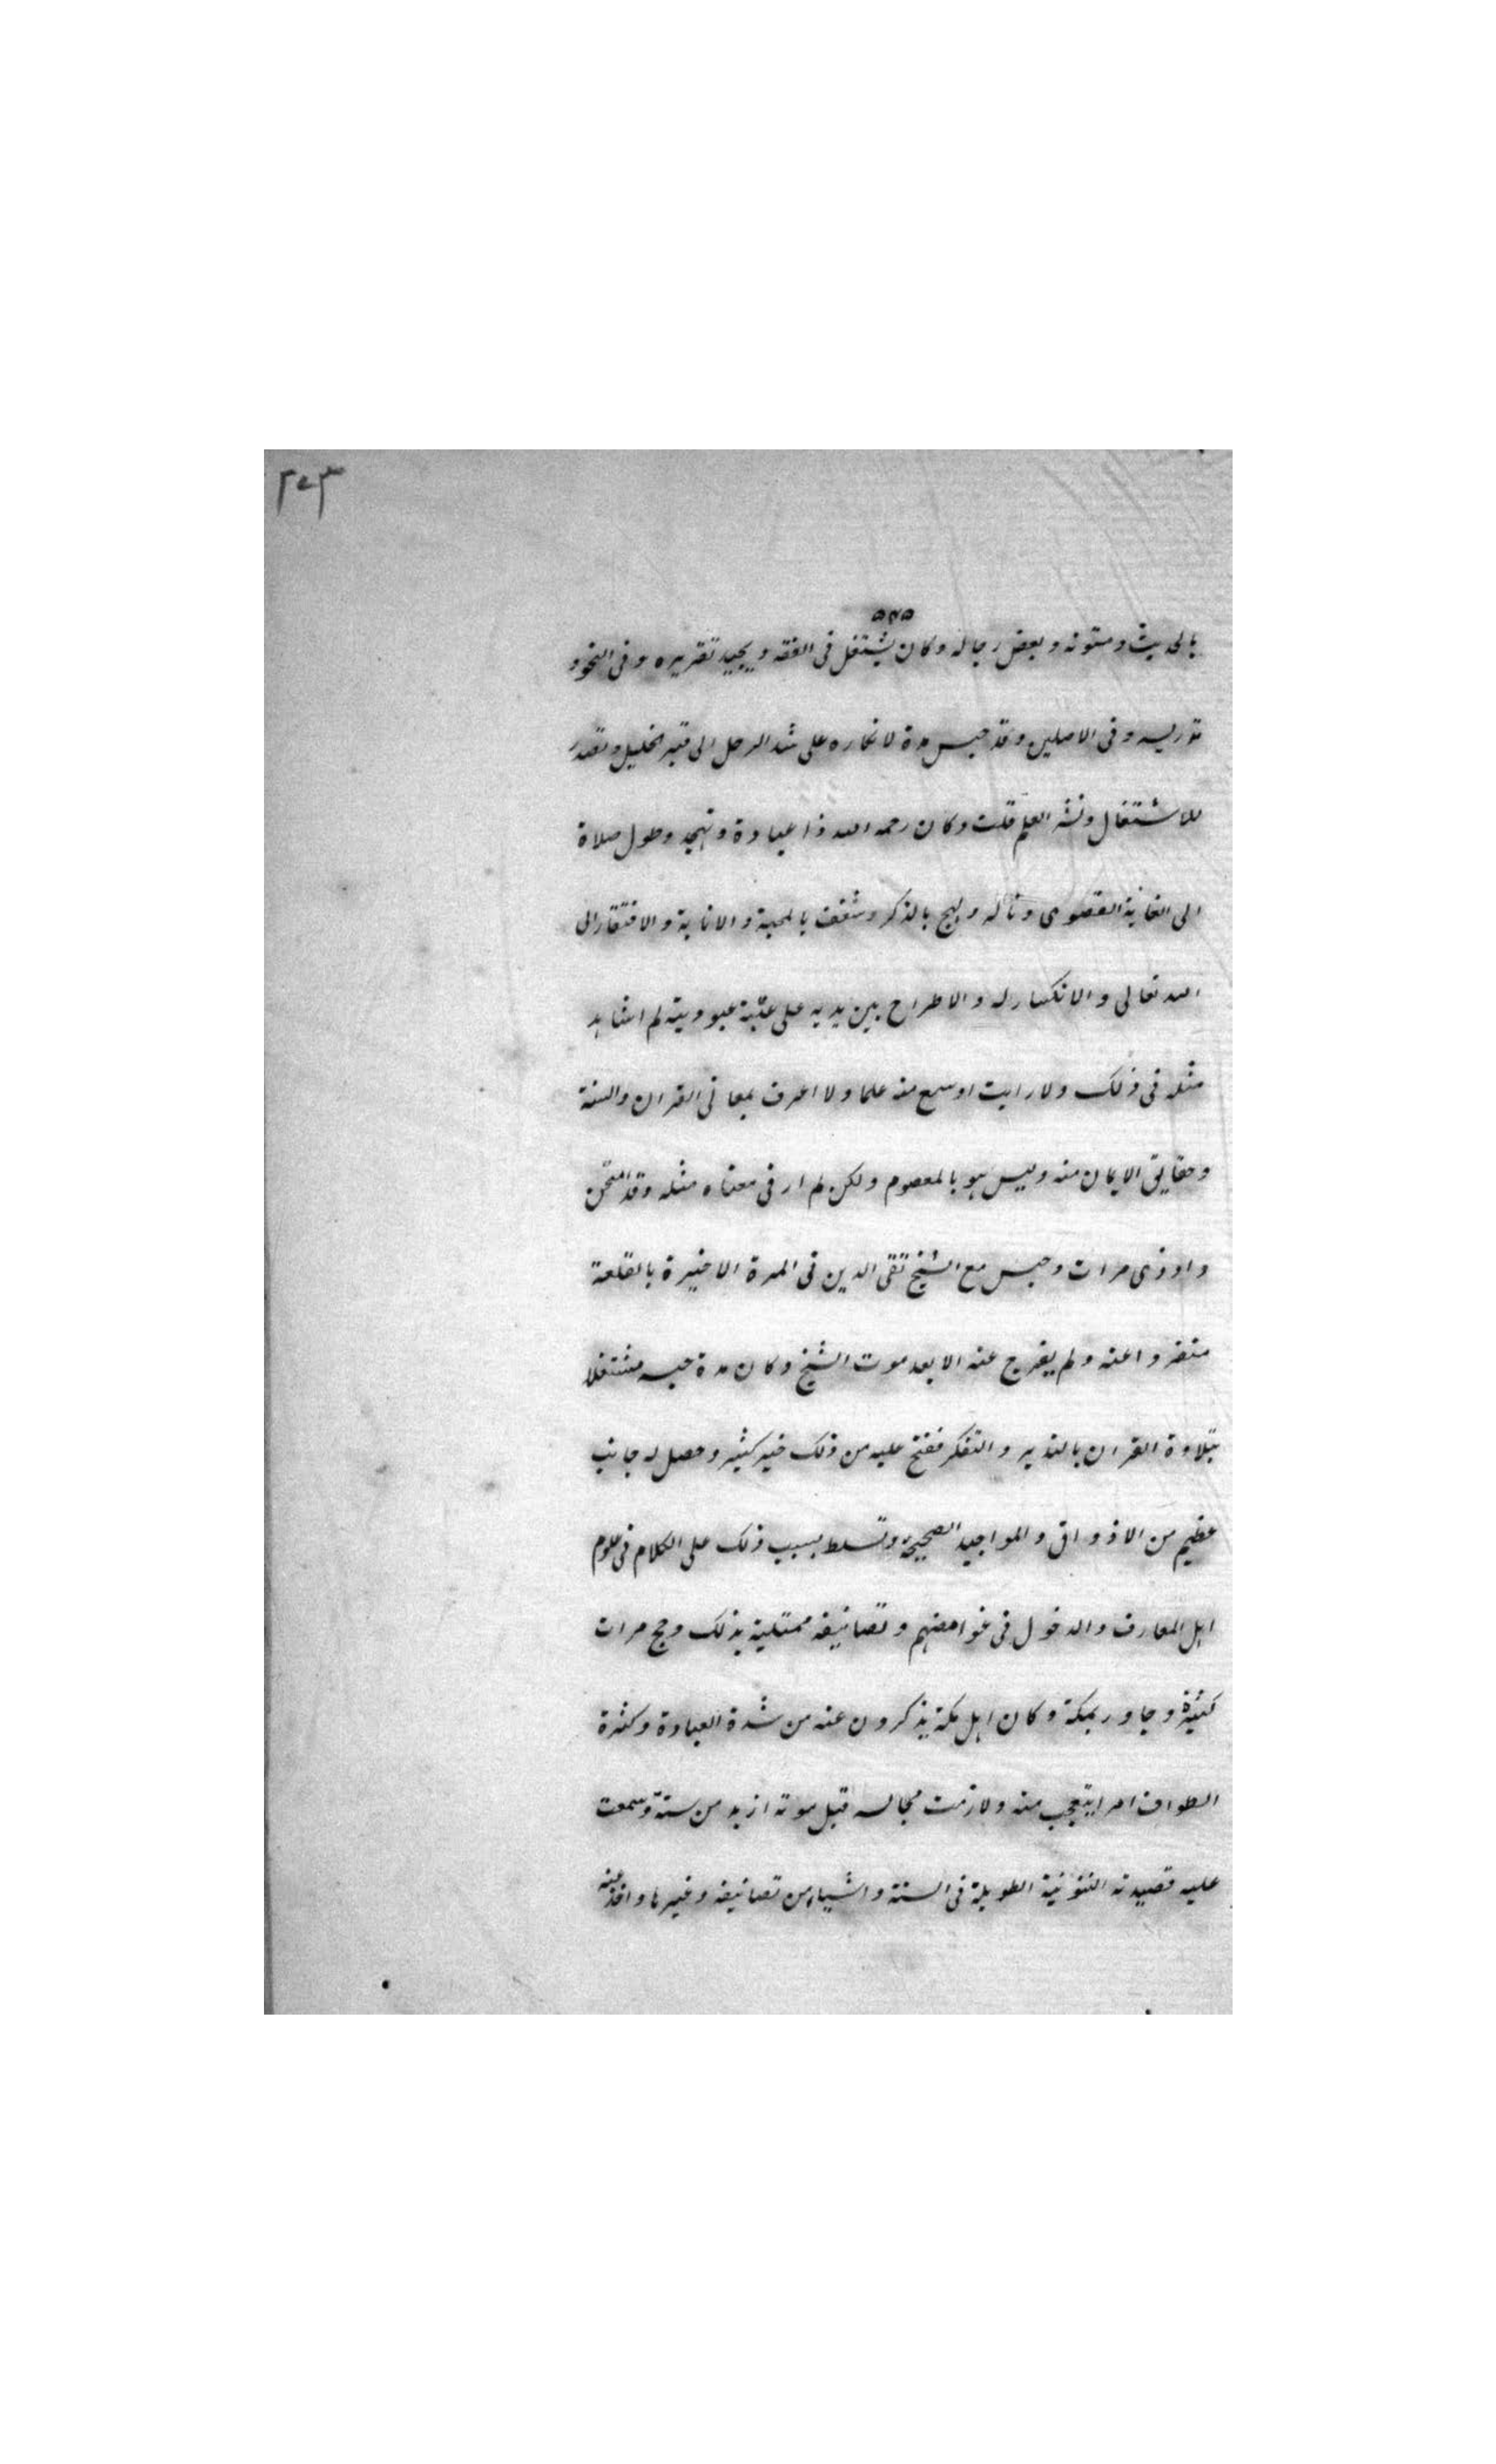 ٣٠٣
٥٣٥
بالحديث ومتونه وبعض رجاله وكان يشتغل فى الفقه ويجيد تقريره وفى النحو و
تدريسه وفى الاصلين وقد حبس مدة لانكاره على شد الرحل الى قبر الخليل وتصدر
للاشتغال ونشر العلم قلت وكان رحمه الله ذا عبادة وتهجد وطول صلاة
الى الغاية القصوى وتأله ولهج بالذكر وشغف بالمحبة والانابة والافتقار الى
الله تعالى والانكسار له والاطراح بين يديه على عتبة عبوديته لم اشاهد
مثله فى ذلك ولا رايت اوسع منه علما ولا اعرف بمعانى القران والسنة
وحقايق الايمان منه وليس هو بالمعصوم ولكن لم ار فى معناه مثله وقد امتحن
واوذى مرات وحبس مع الشيخ تقى الدين فى المرة الاخيرة بالقلعة
منفردا عنه ولم يفرج عنه الا بعد موت الشيخ وكان مدة حبسه مشتغلا
بتلاوة القران بالتدبر والتفكر ففتح عليه من ذلك خير كثير وحصل له جانب
عظيم من الاذواق والمواجيد الصحيحة وتسلط بسبب ذلك على الكلام فى علوم
اهل المعارف والدخول فى غوامضهم وتصانيفه ممتلية بذلك وحج مرات
كثيرة وجاور بمكة وكان اهل مكة يذكرون عنه من شدة العبادة وكثرة
الطواف امرا يتعجب منه ولازمت مجالسه قبل موته ازيد من سنة وسمعت
عليه قصيدته النونية الطويلة فى السنة واشياء من تصانيفه وغيرها واخذ عنه